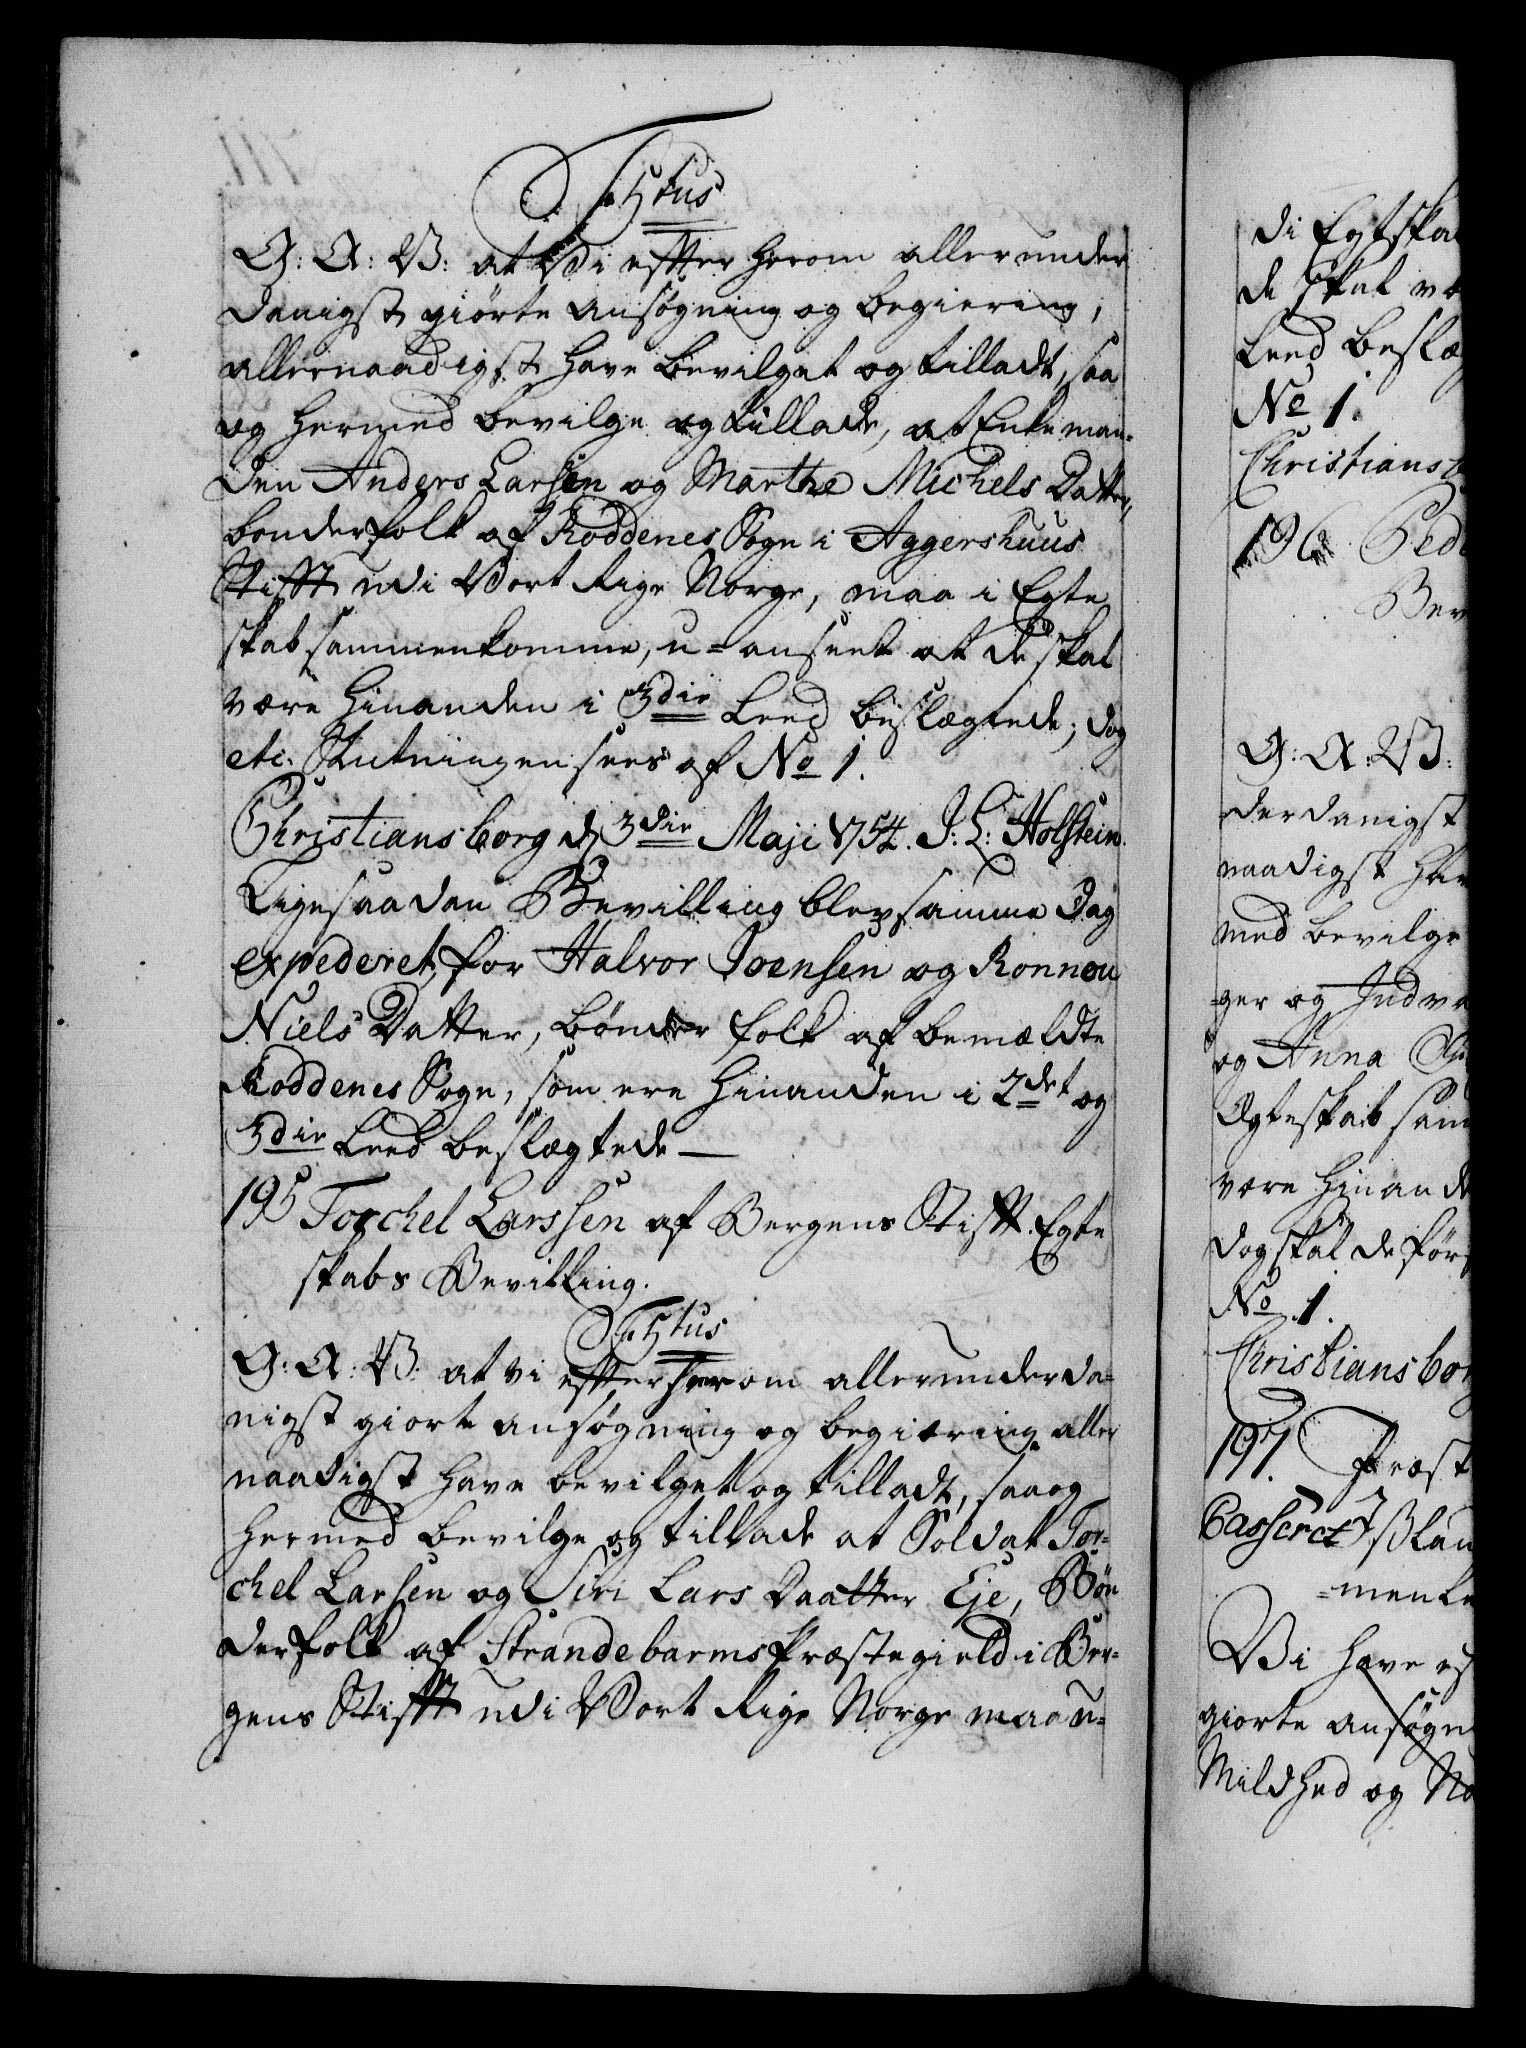 F. 5tus
G: A: V: at Vi efter herom allerunder
danigst giorte ansøgning og begiering,
allernaadigst have bevilget og tilladt, saa
og hermed bevilge og tillade, at Enkeman-
den Anders Larsen og Marthe Michels Datter,
bønderfolk af Røddenes Sogn i Aggershuus
Stifft udi Vort Rige Norge, maa i Egte
skab sammenkomme, u-anseet at de skal
være hinanden i 3die Leed beslægtede; dog
etc. Slutningen sees af No 1.
Christiansborg d 3die Maji 1754. J: L: Holstein.
Ligesaadan Bevilling blev samme Dag
expederet, for Halvor Joensen og Ronnou
Niels Datter, bønder folk af bemældte
Røddenes Sogn, som ere hinanden i 2det og
3die Leed beslægtede —
195 Torchel Larssen af Bergens Stifft Egte
skabs Bevilling.
F. 5tus
G: A: V: at vi effter herom allerunderda-
nigst giorte ansøgning og begiæring aller
naadigst have bevilget og tilladt, saa og
hermed bevilge og tillade at Soldat Tor-
chel Larsen og Siri Lars Daatter Eje, Bøn
derfolk af Strandebarms Præstegield i Ber-
gens Stifft udi Vort Rige Norge maa u-
di Egtskab
de skal væ
Leed beslæg
No 1.
Christiansb
196 Ped
Bev
G: A: V:
derdanigst
naadigst hav
med bevilge
-ger og Indv
og Anna
Egteskab sam
være hinande
dog skal de før
No 1.
Christiansbor
197. Præst
Casseret
-mente
Vi have ef
giorte ansøgn
Mildhed og Na